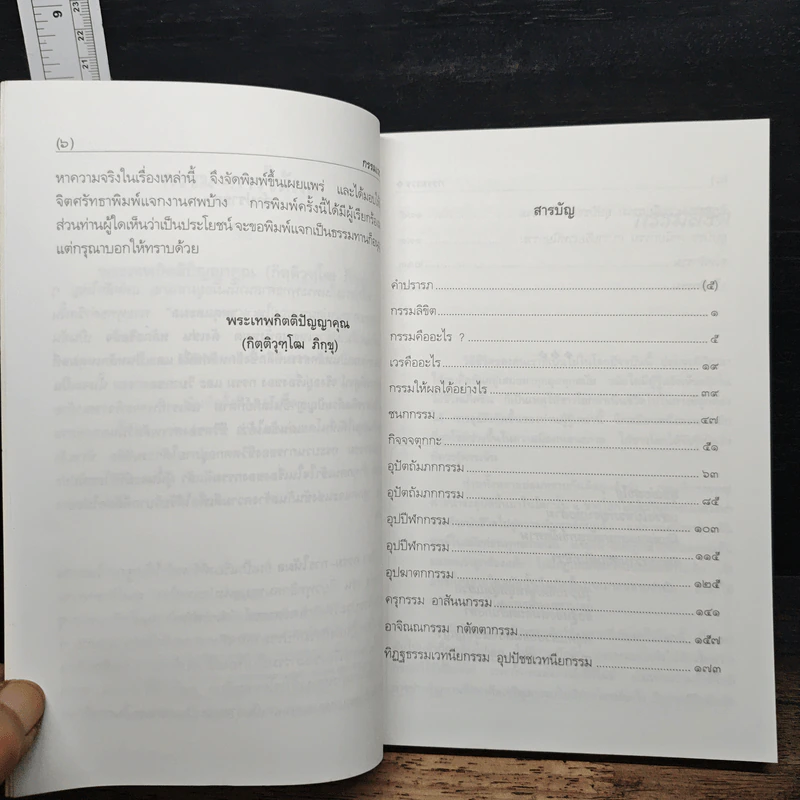 9
23
22
21
(๖)
หาความจริงในเรื่องเหล่านี้ จึงจัดพิมพ์ขึ้นเผยแพร่ และได้มอบให้
จิตศรัทธาพิมพ์แจกงานศพบ้าง การพิมพ์ครั้งนี้ได้มีผู้เรียกร้อง
ส่วนท่านผู้ใดเห็นว่าเป็นประโยชน์ จะขอพิมพ์แจกเป็นธรรมทานก็
แต่กรุณาบอกให้ทราบด้วย
พระเทพกิตติปัญญาคุณ
(กิตฺติวุฑฺโฒ ภิกฺขุ)
สารบัญ
คำปรารภ (๕)
กรรมลิขิต ๑
กรรมคืออะไร ? ๕
เวรคืออะไร ๑๙
กรรมให้ผลได้อย่างไร ๓๙
ชนกกรรม ๔๗
กิจจจตุกกะ ๕๑
อุปัตถัมภกกรรม ๖๓
อุปัตถัมภกกรรม ๘๕
อุปปีฬกกรรม ๑๐๓
อุปปีฬกกรรม ๑๑๕
อุปฆาตกกรรม ๑๒๕
ครุกรรม อาสันนกรรม ๑๔๑
อาจิณณกรรม กตัตตากรรม ๑๕๗
ทิฏฐธรรมเวทนียกรรม อุปปัชชเวทนียกรรม ๑๗๓